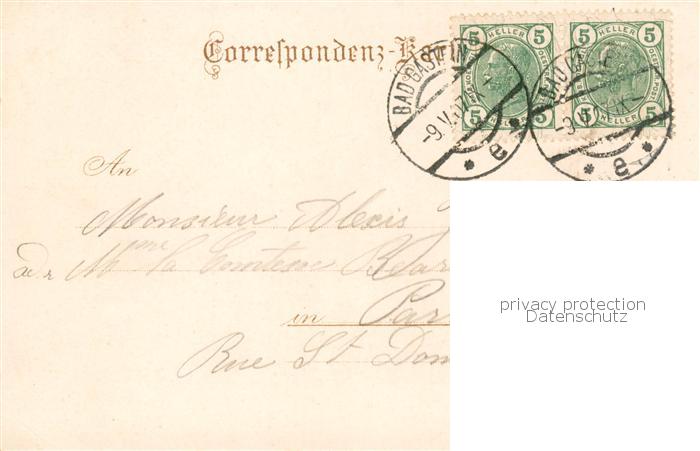 Correspondenz-Karte
5 HELLER 5
5 HELLER 5
BAD GASTEIN
-9.V.07
e
BAD GASTEIN
-9.V
e
An
Monsieur Alexis
adr Mme la Comtesse
in Par
Rue St Dom
privacy protection
Datenschutz